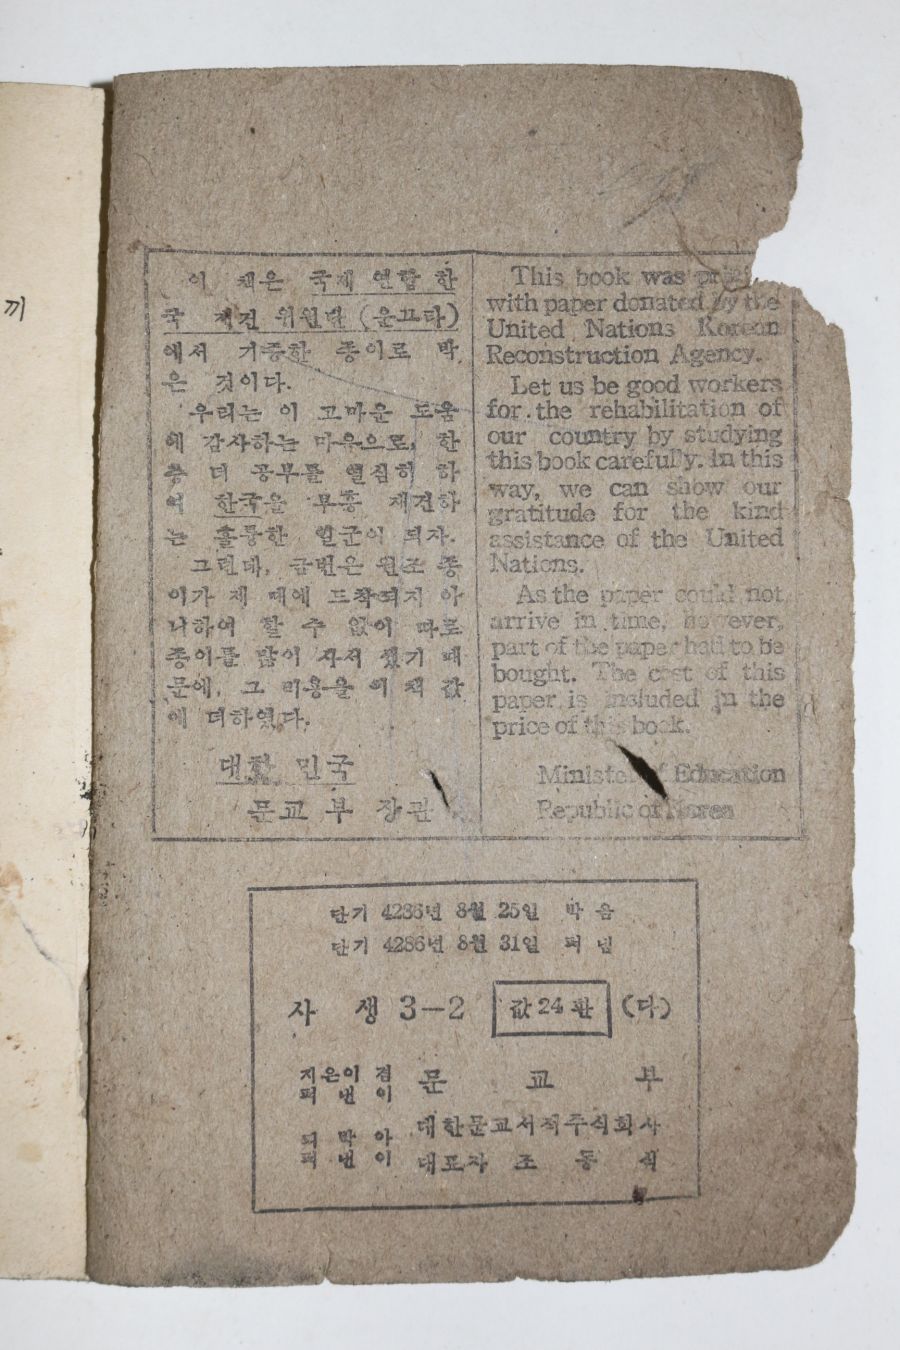 끼
이 책은 국제 연합 한
국 재건 위원단 (운끄라)
에서 기증한 종이로 박
은 것이다.
우리는 이 고마운 도움
에 감사하는 마음으로, 한
층 더 공부를 열심히 하
여 한국을 부흥 재건하
는 훌륭한 일군이 되자.
그런데, 금번은 원조 종
이가 제 때에 도착되지 아
니하여 할 수 없이 따로
종이를 많이 사서 썼기 때
문에, 그 비용을 이 책 값
에 더하였다.
대한 민국
문교부 장관
This book was
with paper donated by the
United Nations Korean
Reconstruction Agency.
Let us be good workers
for the rehabilitation of
our country by studying
this book carefully. In this
way, we can show our
gratitude for the kind
assistance of the United
Nations.
As the paper could not
arrive in time, however,
part of the paper had to be
bought. The cost of this
paper is included in the
price of this book.
Minister of Education
Republic of Korea
단기 4286년 8월 25일 박음
단기 4286년 8월 31일 펴냄
사 생 3-2 값 24환 (다)
지은이 겸
펴 낸 이 문 교 부
되 박 아 대한문교서적주식회사
펴 낸 이 대표자 조 동 식